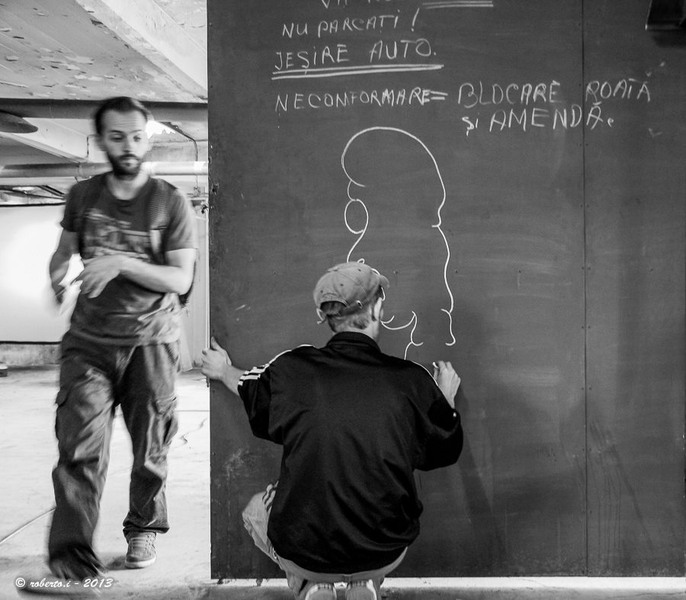 NU PARCAȚI!
IEȘIRE AUTO.
NECONFORMARE= BLOCARE ROATĂ
ȘI AMENDĂ.
© roberto.i - 2013